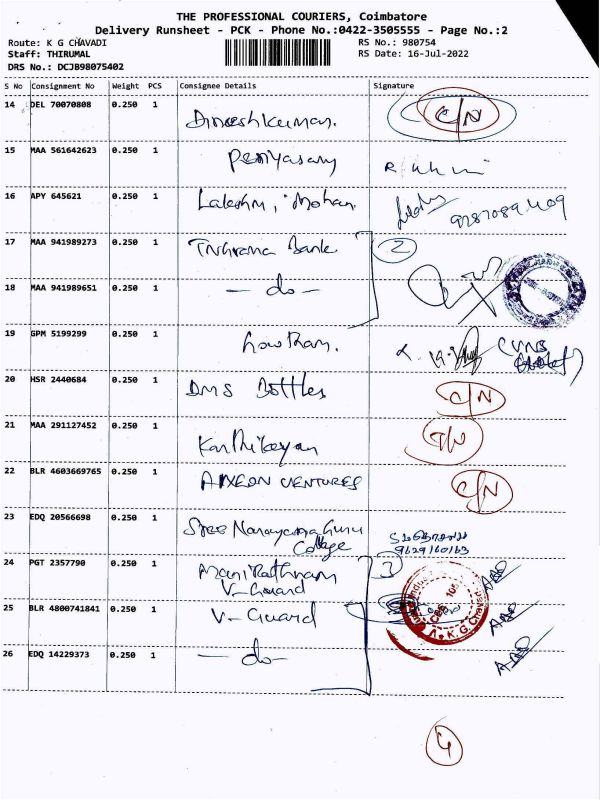 THE PROFESSIONAL COURIERS, Coimbatore
Delivery Runsheet - PCK - Phone No.:0422-3505555 - Page No.:2
Route: K G CHAVADI RS No.: 980754
Staff: THIRUMAL RS Date: 16-Jul-2022
DRS No.: DCJB98075402
S No Consignment No Weight PCS Consignee Details Signature
14 DEL 70070808 0.250 1 Dineshkumar. C/N
15 MAA 561642623 0.250 1 Periyasamy
16 APY 645621 0.250 1 Lakshmi, Mohan
17 MAA 941989273 0.250 1 Bank 2
18 MAA 941989651 0.250 1 - do -
19 GPM 5199299 0.250 1 Gowtham.
20 HSR 2440684 0.250 1 DMS Bottles C/N
21 MAA 291127452 0.250 1 Karthikeyan
22 BLR 4603669765 0.250 1 VENTURES C/N
23 EDQ 20566698 0.250 1 Sree Narayana Guru
College 9629160163
24 PGT 2357790 0.250 1 Manirathnam 3
V-Guard
25 BLR 4800741841 0.250 1 V-Guard
26 EDQ 14229373 0.250 1 - do -
4